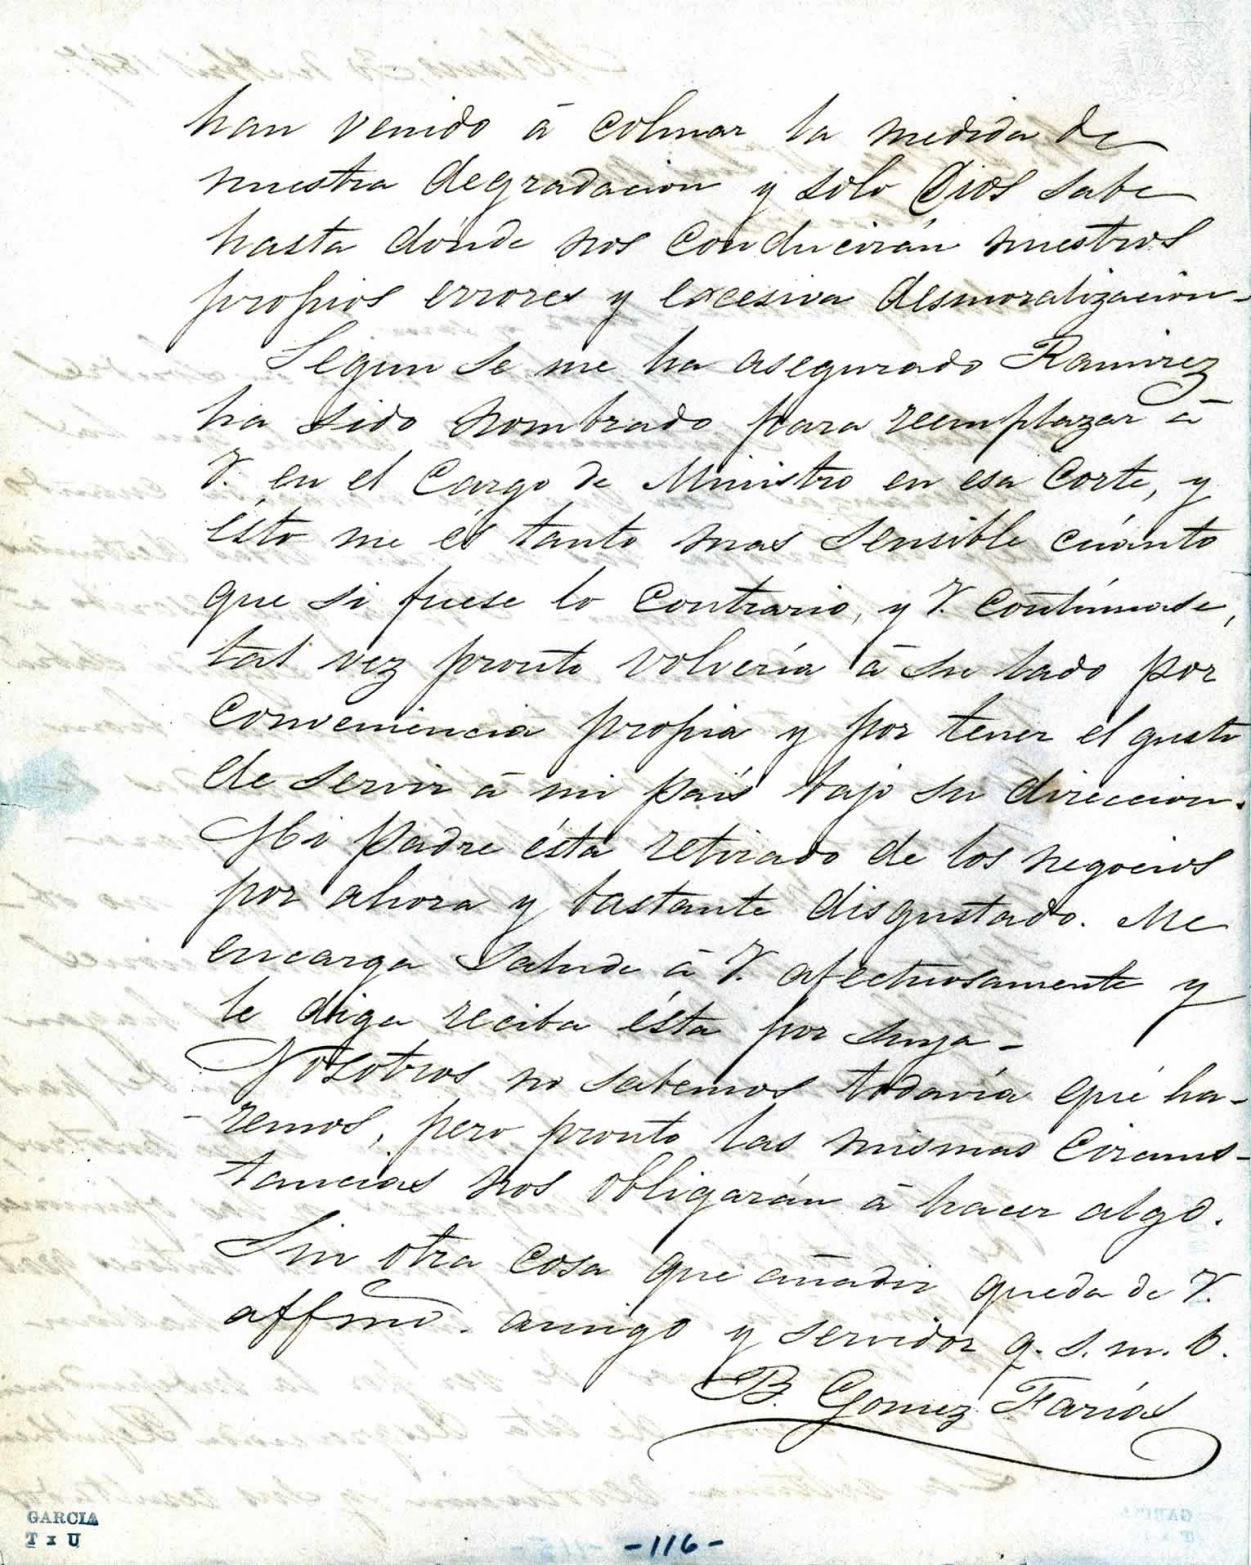 han venido á colmar la medida de
nuestra degradacion y solo Dios sabe
hasta dónde nos conducirán nuestros
propios errores y excesiva desmoralizacion-
Segun se me ha asegurado Ramirez
ha sido nombrado para reemplazar á
V. en el cargo de Ministro en esa Corte, y
ésto me és tanto mas sensible cuánto
que si fuese lo contrario, y V. contínuase,
tal vez pronto volvería á su lado por
conveniencia propia y por tener el gusto
de servir á mi país bajo su direccion.
Mi Padre está retirado de los negocios
por ahora y bastante disgustado. Me
encarga salude á V. afectuosamente y
le diga reciba ésta por suya-
Nosotros no sabemos todavía qué ha-
-remos, pero pronto las mismas circuns-
tancias nos obligarán á hacer algo.
Sin otra cosa que añadir queda de V.
affmo. amigo y servidor q. s. m. b.
B. Gomez Farías
GARCIA
T x U
-116-